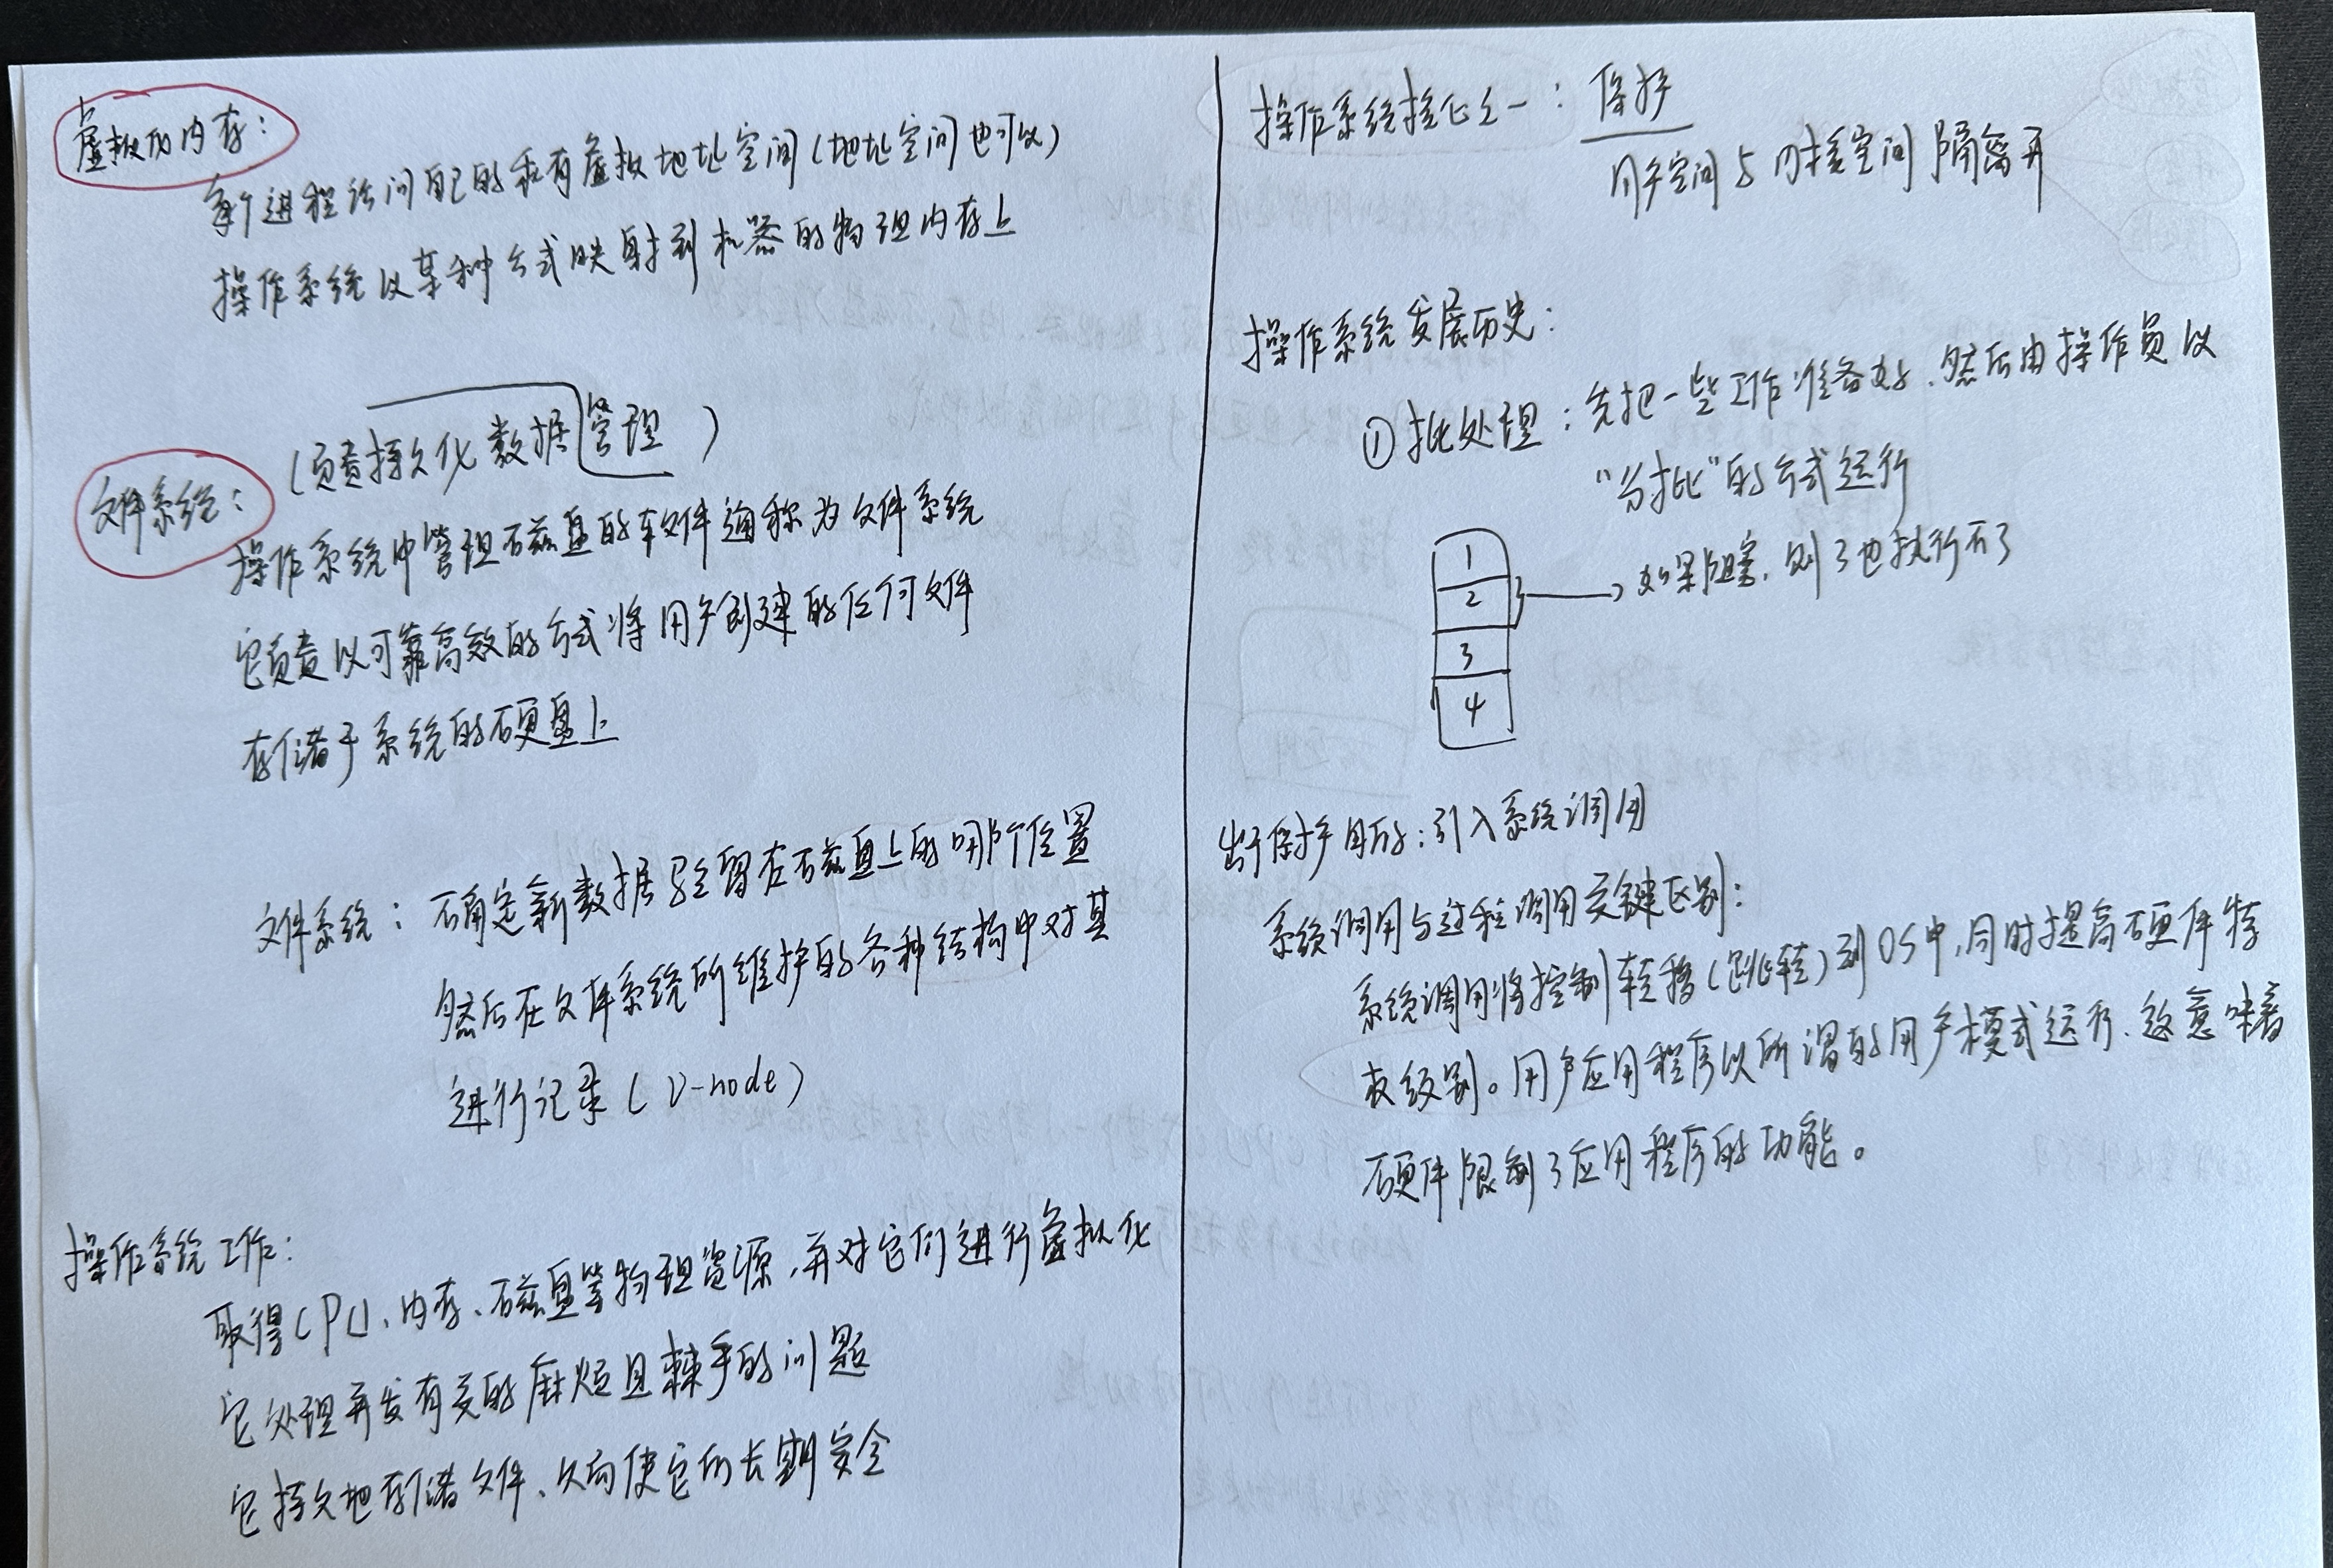 虚拟化内存：
每个进程访问自己的私有虚拟地址空间（地址空间也可以）
操作系统以某种方式映射到机器的物理内存上
（负责持久化数据管理）
文件系统：
操作系统中管理磁盘的软件通称为文件系统
它负责以可靠高效的方式将用户创建的任何文件
存储于系统的硬盘上
文件系统：确定新数据驻留在磁盘上的哪个位置
然后在文件系统所维护的各种结构中对其
进行记录（-node）
操作系统工作：
取得CPU、内存、磁盘等物理资源，并对它们进行虚拟化
它处理并发有关的麻烦且棘手的问题
它持久地存储文件、从而使它们长期安全
操作系统核心之一：保护
用户空间与内核空间隔离开
操作系统发展历史：
①批处理：先把一些工作准备好，然后由操作员以
“分批”的方式运行
1
2 如果阻塞，则3也执行不了
3
4
出于保护目的：引入系统调用
系统调用与过程调用关键区别：
系统调用将控制转移（跳转）到OS中，同时提高硬件特
权级别。用户应用程序以所谓的用户模式运行，这意味着
硬件限制了应用程序的功能。